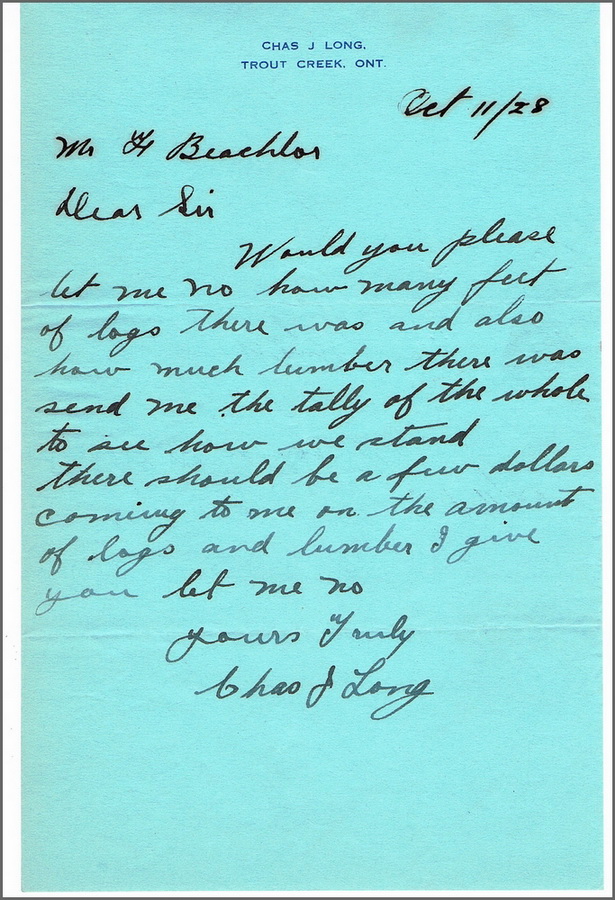 CHAS J LONG,
TROUT CREEK, ONT.
Oct 11/28
Mr H Beachlor
Dear Sir
Would you please
let me no how many feet
of logs there was and also
how much lumber there was
send me the tally of the whole
to see how we stand
there should be a few dollars
coming to me on the amount
of logs and lumber I give
you let me no
yours Truly
Chas J Long